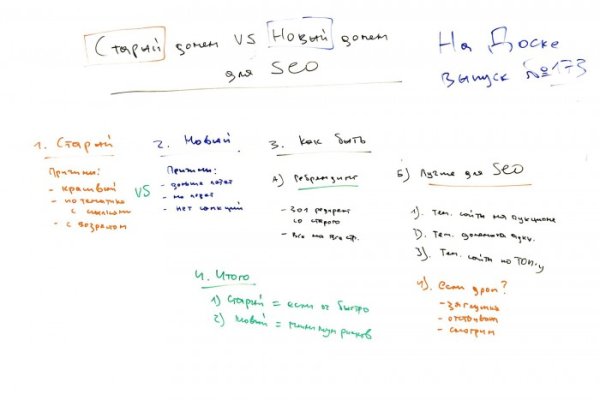 Старый домен VS Новый домен
для SEO
На Доске
выпуск №173
1. Старый
Причины:
- красивый
- по тематике
с ссылками
- с возрастом
VS
2. Новый
Причины:
- дольше
- не
- нет санкций
3. Как быть
А) Ребрендинг
- 301 редирект
со старого
- Все на все стр.
Б) Лучше для SEO
1). Тем. сайты на аукционе
2). Тем. домены аукц.
3). Тем. сайты по ТОП-у
4). Если дроп?
- загнулся
-
- смотрим
4. Итого
1) Старый = если быстро
2) Новый = минимум рисков